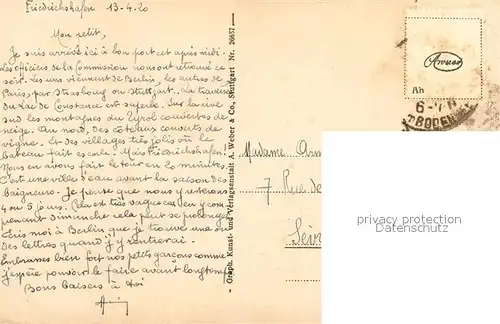 Friedrichshafen 13-4-20
Mon petit,
Je suis arrivé ici à bon port cet après midi.
Les officiers de la Commission nous ont retrouvé ce
soir. Les uns viennent de Berlin, les autres de
Paris, par Strasbourg ou Stuttgart. La traversée
du Lac de Constance est superbe. Sur la rive
sud les montagnes du Tyrol couvertes de
neige. Au nord, des coteaux couverts de
vigne. Et des villages très jolis où le
bateau fait escale. Mais Friedrichshafen!
Nous en avons fait le tour en 20 minutes.
C'est une ville d'eau avant la saison des
baigneurs. Je pense que nous y resterons
4 ou 5 jours. Cela est très vague car en y com-
prenant dimanche cela peut se prolonger.
Ecris moi à Berlin que je trouve une ou
des lettres quand j'y rentrerai.
Embrasses bien fort nos petits garçons comme
j'espère pouvoir le faire avant longtemps
Bons baisers à toi
Graph. Kunst- und Verlagsanstalt A. Weber & Co., Stuttgart Nr. 20657
Ab
6-7 N
BODEN
Madame
7 Rue de
privacy protection
Datenschutz